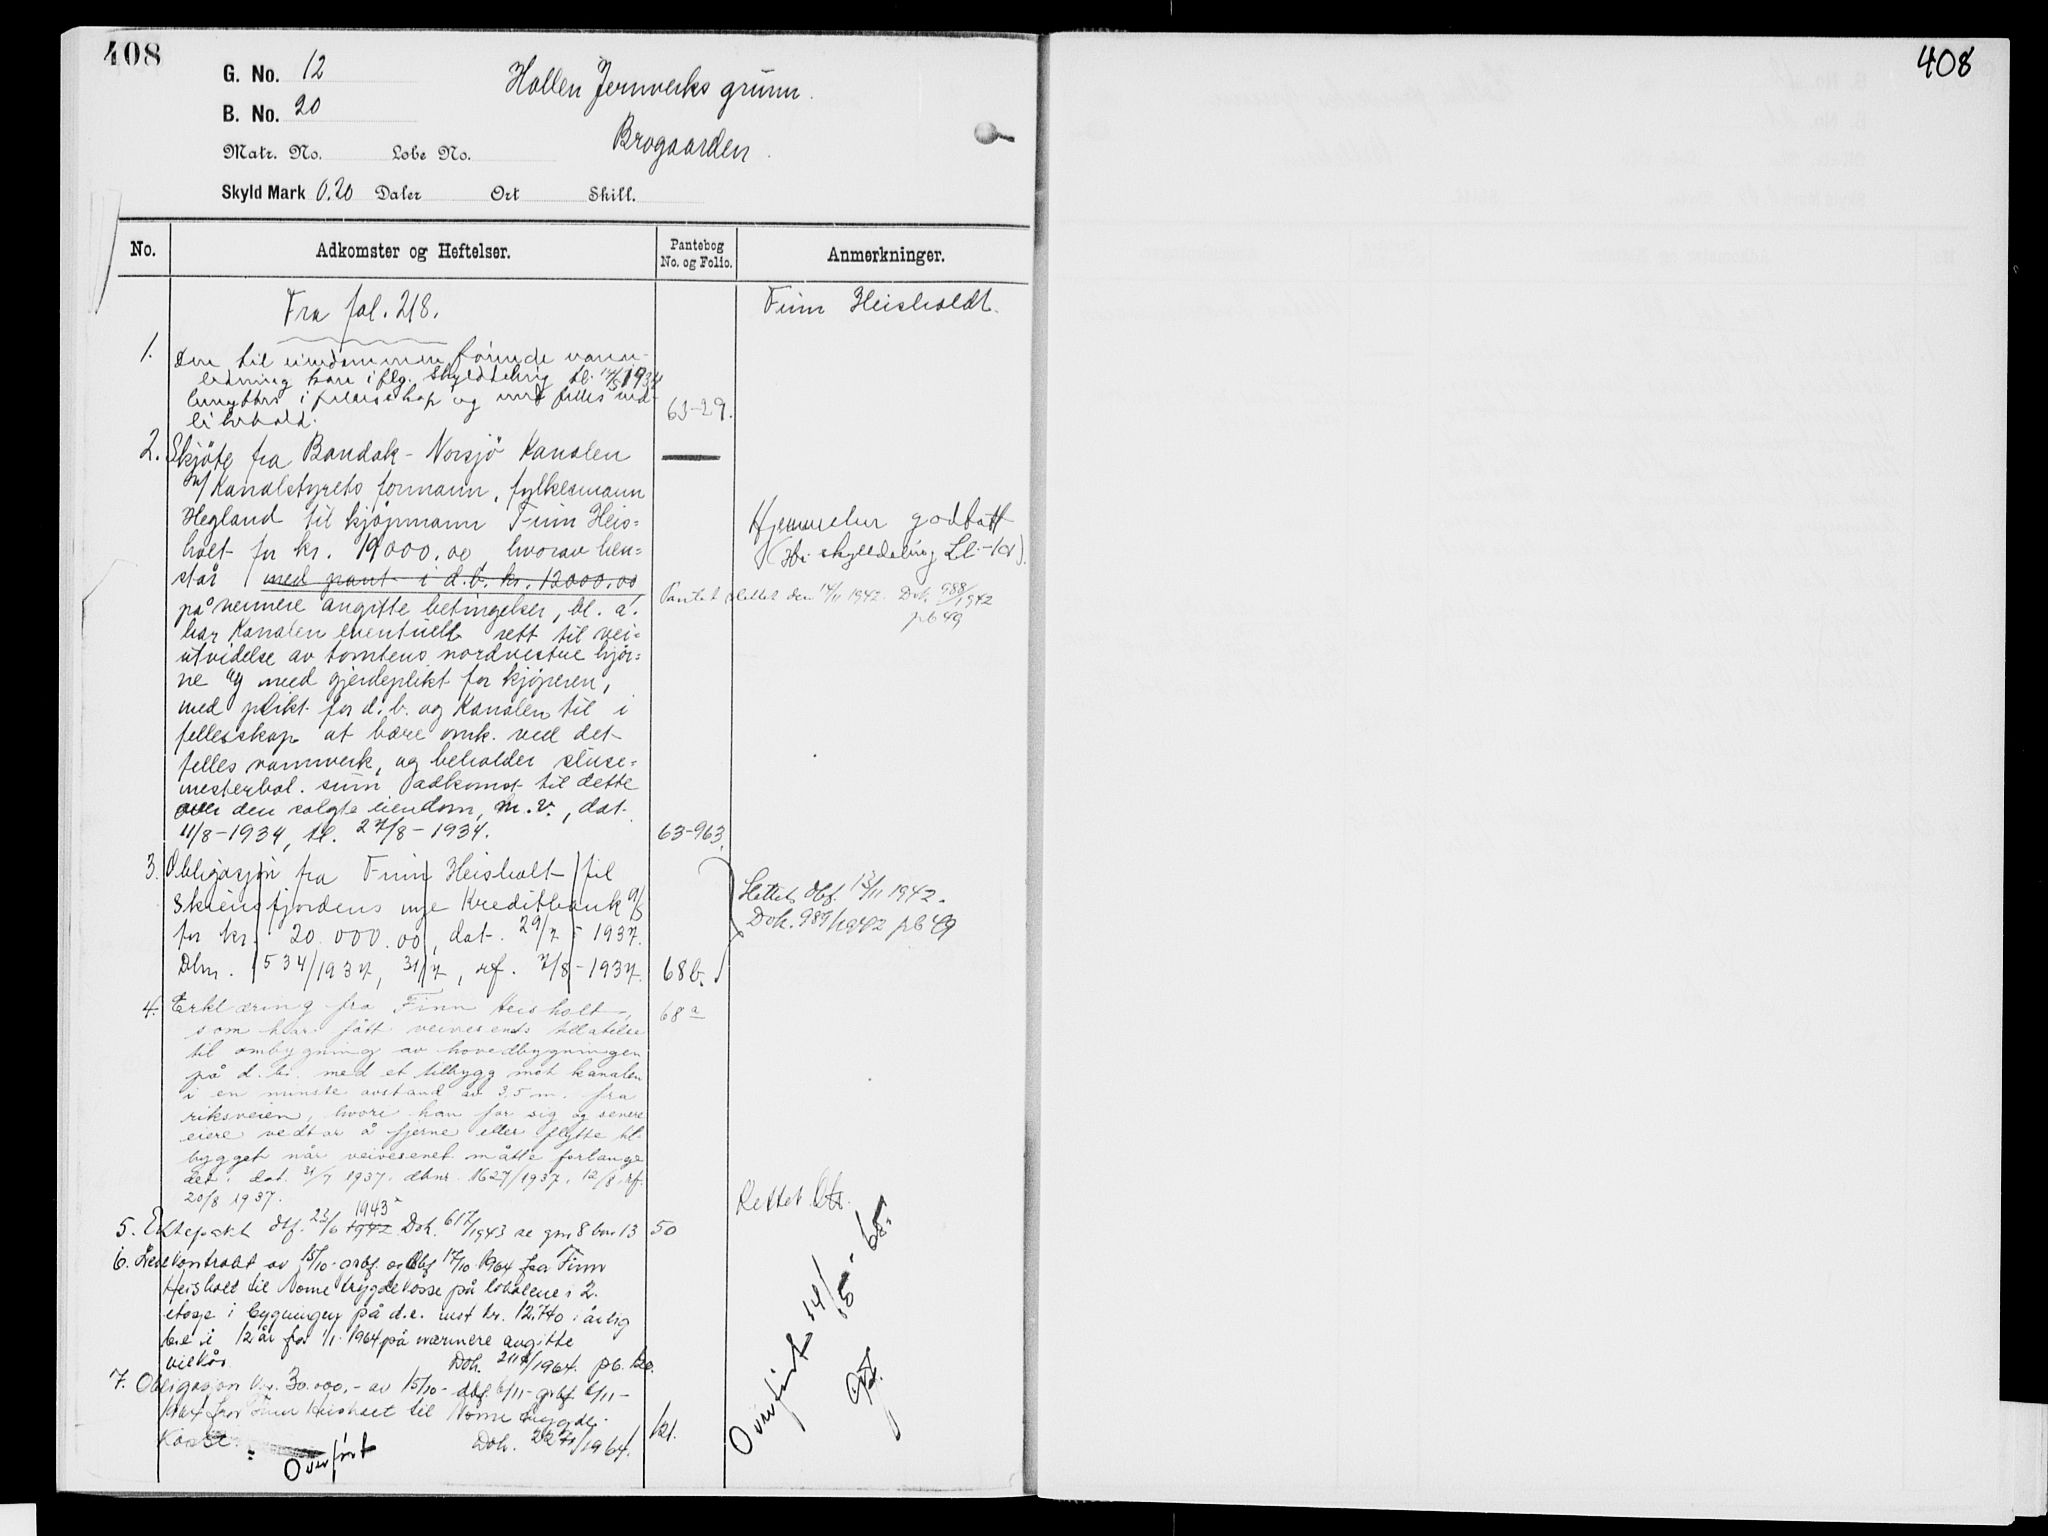 408
408
G. No. 12
Hollen Jernverks grunn.
B. No. 20
Brogaarden.
Matr. No. Løbe No.
Skyld Mark 0.20 Daler Ort Skill.
No. Adkomster og Heftelser. Pantebog No. og Folio. Anmerkninger.
Fra fol. 218.
Finn Heisholdt.
1. Den til eiendommen førende vann-
ledning kan iflg. skylddeling tl. 1934
benyttes i fellesskap og med felles ved-
likehold. 63-29.
2. Skjøte fra Bandak-Norsjö Kanalen
v/ Kanalstyrets formann, fylkesmann
Hegland til kjøpmann Finn Heis=
holt for kr. 19000.00 hvorav hen=
står med pant i d.b. kr. 12000.00
på nermere angitte betingelser, bl. a.
har Kanalen eventuelt rett til vei=
utvidelse av tomtens nordvestre hjør=
ne og med gjerdeplikt for kjøperen,
med plikt for d.b. og Kanalen til i
fellesskap at bære omk. ved det
felles vannverk, og beholder sluse=
mesterbol. sin adkomst til dette
over den solgte eiendom, m.v., dat.
11/8-1934, tl. 27/8-1934. 63-963.
Hjemmelen godtatt
Pantet slettet den 14/11 1942. Dok. 988/1942
pb 49
3. Obligasjon fra Finn Heisholt til
Skiensfjordens nye Kreditbank A/S
for kr. 20.000.00, dat. 29/7 - 1937.
Dbnr. 1534/1937, 31/7, rf. 7/8-1937. 68b.
Slettet dbf. 13/11 1942.
Dok. 989/1942 pb 49
4. Erklæring fra Finn Heisholt, 68a
som har fått veivesenets tillatelse
til ombygning av hovedbygningen
på d.b. med et tilbygg mot kanalen
i en minste avstand av 3,5 m. fra
riksveien, hvori han for sig og senere
eiere vedtar å fjerne eller flytte til-
bygget når veivesenet måtte forlange
det. dat. 31/7 1937. dbnr. 1627/1937, 12/8, rf.
20/8 1937.
Rettet
5. Ektepakt dbf. 23/6 1942 1943 Dok. 617/1943 se gnr 8 bnr 13 50
6. Leiekontrakt av 15/10- og dbf 17/10 1964 fra Finn
Heisholt til Nome trygdekasse på lokalene i 2.
etasje i bygningen på d.e. mot kr. 12.740 i årlig
leie i 12 år fra 1/1. 1964 på nærmere angitte
vilkår Dok. /1964. pb.
7. Obligasjon kr. 30.000,- av 15/10- dbf. 6/11- 6/11-
1964 fra Finn Heisholt til Nome trygde-
kasse. Dok. 2271/1964. 121.
Overført
Overført 14/ - 65.